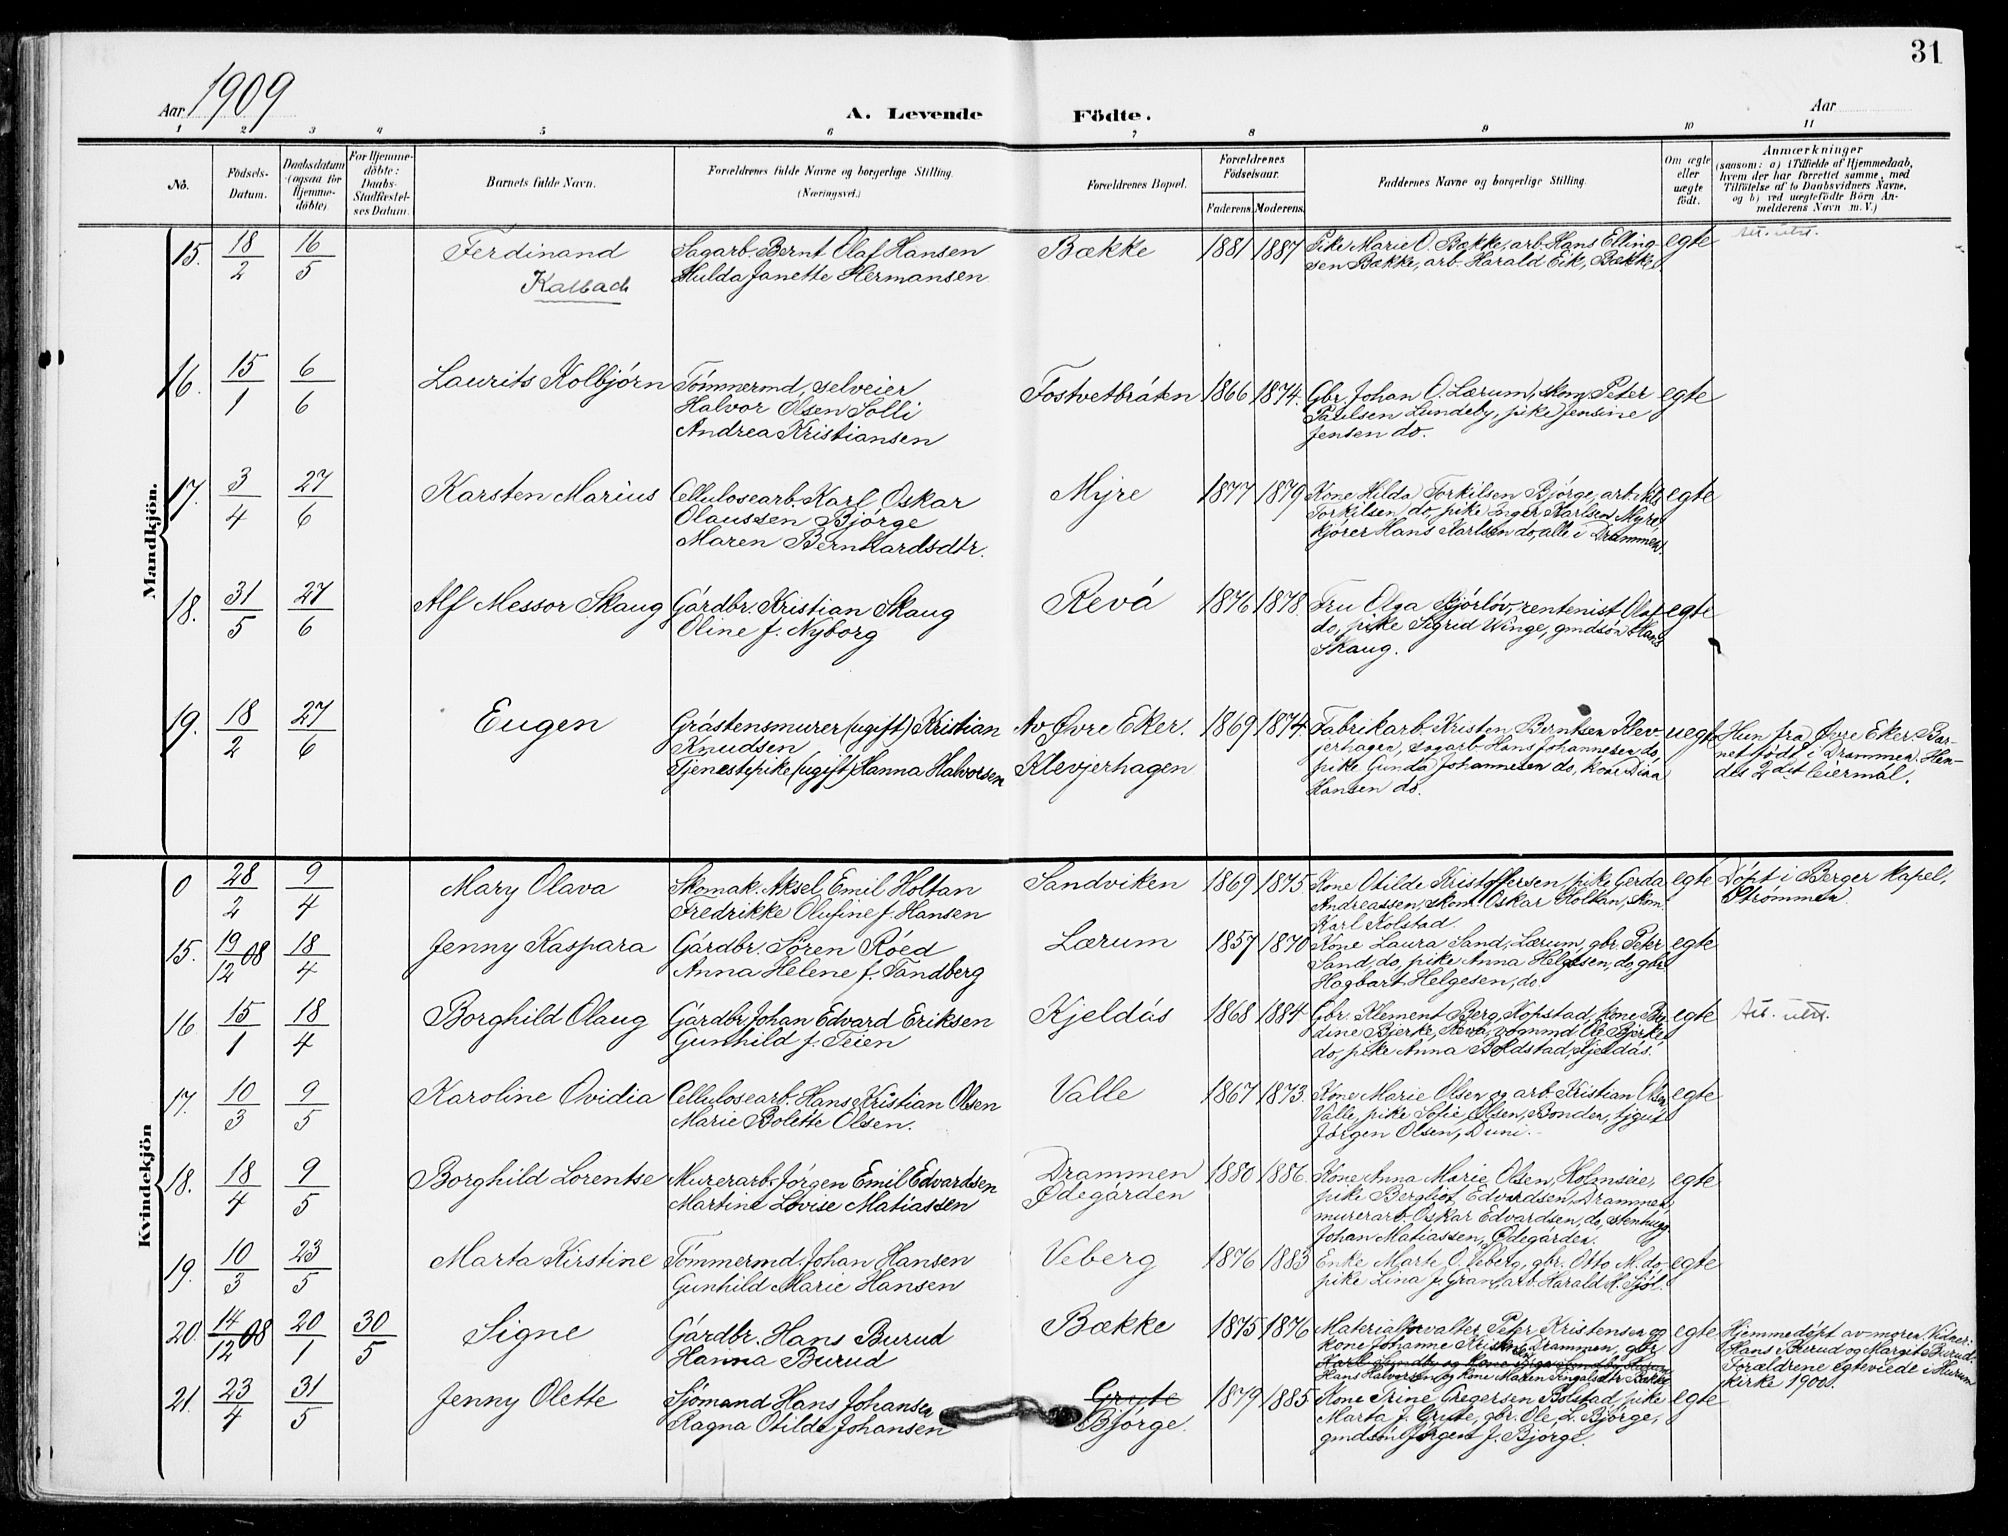 31
Aar 1909
A. Levende Födte.
Aar
1 2 3 4 5 6 7 8 9 10 11
No.
Födsels-Datum.
Daabsdatum (ogsaa for Hjemmedöbte).
For Hjemmedöbte: Daabs-Stadfæstelses Datum.
Barnets fulde Navn.
Forældrenes fulde Navne og borgerlige Stilling. (Næringsvei.)
Forældrenes Bopæl.
Forældrenes Födselsaar.
Faderens. Moderens.
Faddernes Navne og borgerlige Stilling.
Om ægte eller uægte födt.
Anmærkninger
(saasom: a) i Tilfælde af Hjemmedaab, hvem der har forrettet samme, med Tilföielse af to Daabsvidners Navne, og b) ved uægtefödte Börn Anmelderens Navn m. V.)
Mandkjön.
15. 18/2 16/5 Ferdinand Kalbach
Sagarb. Bernt Olaf Hansen
Hulda Janette Hermansen.
Bække 1881 1887
Pike Marie O. Bække, arb. Hans Elling-
sen Bække, arb. Harald Eik, Bække
egte
Att. utst.
16. 15/1 6/6 Laurits Kolbjórn
Tómmermd, selveier
Halvor Olsen Solli
Andrea Kristiansen
Tostvetbráten 1866 1874.
Gbr. Johan O. Lærum, skom. Peter
Paulsen Lundeby, pike Jensine
Jensen do.
egte
17. 3/4 27/6 Karsten Marius
Cellulosearb. Karl Oskar
Olaussen Bjórge
Maren Bernhardsdtr.
Myre 1877 1879
Kone Hilda Torkilsen Bjórge, arb.
Torkilsen do, pike Inger Karlsen Myre,
kjórer Hans Karlsen do, alle i Drammen.
egte
18. 31/5 27/6 Alf Messor Skaug
Gárdbr. Kristian Skaug
Oline f. Nyborg
Revá 1876 1878.
Fru Olga Kjórlóv, rentenist Olaf
do, pike Sigrid Winge, gmdsón Hans
Skaug.
egte
19. 18/2 27/6 Eugen
Grástensmurer (ugift) Kristian
Knudsen
Tjenestepike (ugift) Hanna Halvorsen
Av Øvre Eker.
Klevjerhagen
1869 1874.
Fabrikarb. Kristen Berntsen Klev-
jerhagen, sagarb. Hans Johannesen do,
pike Gunda Johannesen do, kone Dina
Hansen do.
uegte
Hun fra Øvre Eker. Bar-
net fódt i Drammen. Hen-
des 2det leiermál.
Kvindekjön
0 28/2 9/4 Mary Olava
Skomak. Aksel Emil Holtan
Fredrikke Olufine f. Hansen
Sandviken 1869 1875
Kone Otilde Kristoffersen, pike Gerda
Andreassen, skom. Oskar Holtan, skom.
Karl Kolstad.
egte
Dópt i Berger kapel,
Strómmen.
15. 19/12 08 18/4 Jenny Kaspara
Gárdbr. Sóren Róed
Anna Helene f. Tandberg
Lærum 1857 1870
Kone Laura Sand, Lærum, gbr. Petr
Sand, do, pike Anna Helgesen, do, gbr
Hagbart Helgesen, do.
egte
16 15/1 18/4 Borghild Olaug
Gárdbr Johan Edvard Eriksen
Gunhild f. Teien
Kjeldás 1868 1884
Gbr. Klement Berg, Kopstad, kone Ber-
dine Bjerke, Revá, tommd Ole Bjerke
do, pike Anna Boldstad, Kjeldás.
egte
Att. utst.
17. 10/3 9/5 Karoline Ovidia
Cellulosearb. Hans Kristian Olsen
Marie Bolette Olsen.
Valle 1867 1873.
Kone Marie Olsen og arb. Kristian Olsen,
Valle, pike Sofie Olsen, Bonden, tjgut
Jórgen Olsen, Duni.
egte
18. 18/4 9/5 Borghild Lorentse
Murerarb. Jórgen Emil Edvardsen
Martine Lovise Matiassen
Drammen
Ødegárden
1880 1886.
Kone Anna Marie Olsen, Holmseie,
pike Bergliot Edvardsen, Drammen,
murerarb. Oskar Edvardsen, do, stenhugg
Johan Matiassen, Ødegárden.
egte
19. 10/3 23/5 Marta Kirstine
Tómmermd. Johan Hansen
Gunhild Marie Hansen
Veberg 1876 1883
Enke Marte O. Veberg, gbr. Otto M. do,
pike Lina J. Gran, arb. Harald H. Sjól.
egte
20. 14/12 08 20/1 30/5 Signe
Gárdbr. Hans Burud
Hanna Burud
Bække 1875 1876
Materialforvalter Petr Kristensen og
kone Johanne Kristensen, Drammen, gbr.
Hans Halvorsen og Kone Maren Bække
egte
Hjemmedópt av moren. Vidner:
Hans Burud og Margit Burud.
Forældrene egteviede i Hurum
kirke 1900.
21. 23/4 31/5 Jenny Olette
Sjómand Hans Johansen
Ragna Otilde Johansen
Gryte
Bjórge.
1879 1885
Kone Trine Gregersen Bolstad, pike
Marta J. Gryte, gbr. Ole L. Bjórge,
gmdsón Jórgen J. Bjórge.
egte